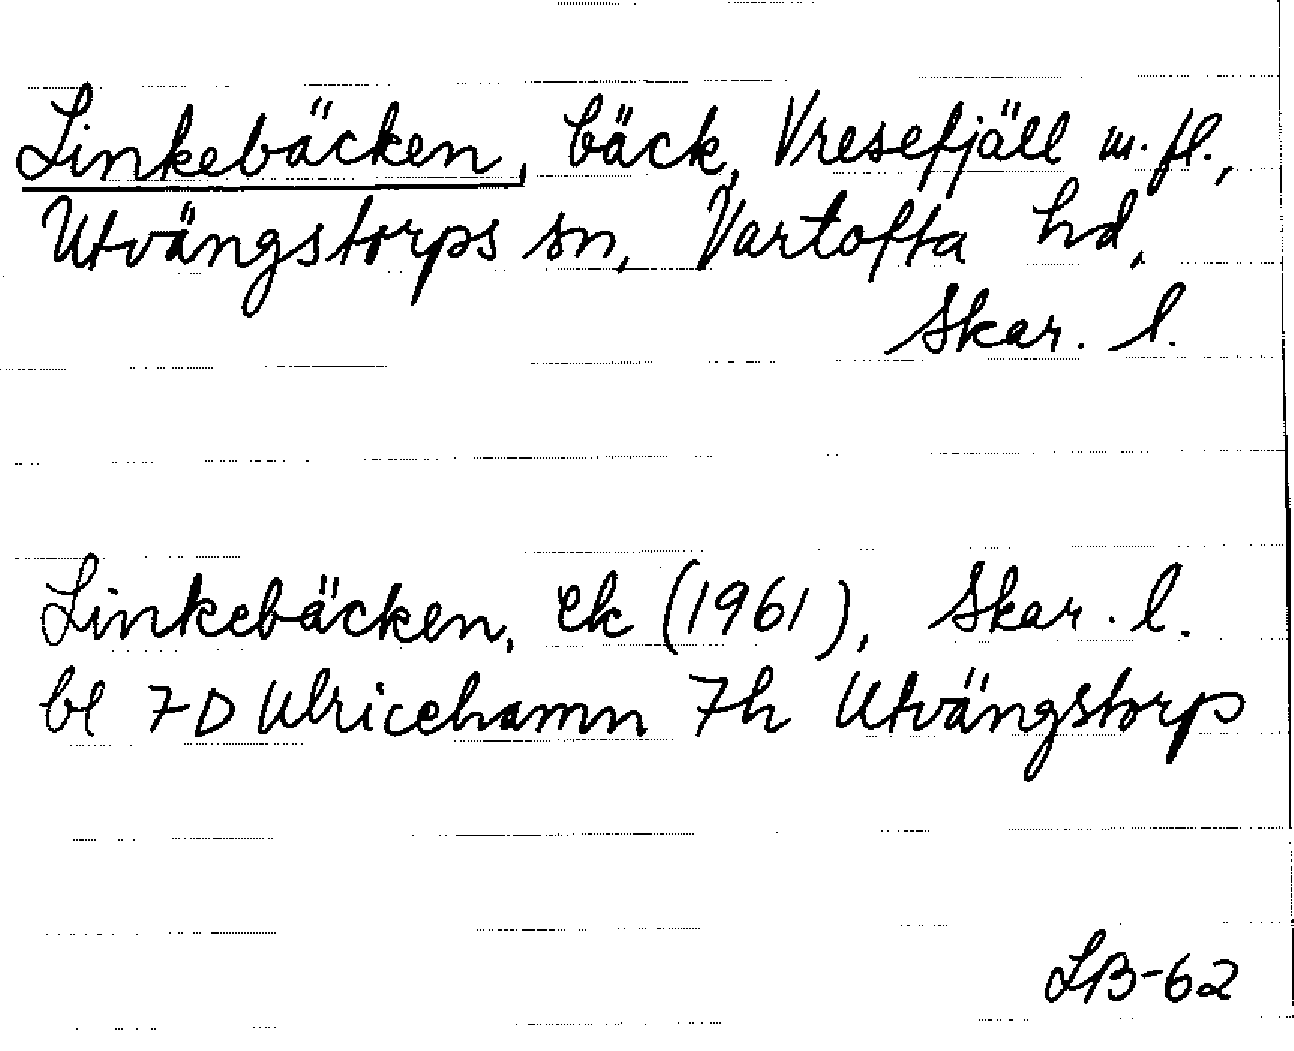 Linkebäcken, bäck, Vresefjäll m.fl.,
Utvängstorps sn, Vartofta hd,
Skar. l.
Linkebäcken, ek (1961), Skar. l.
bl 7D Ulricehamn 7h Utvängstorp
LB-62